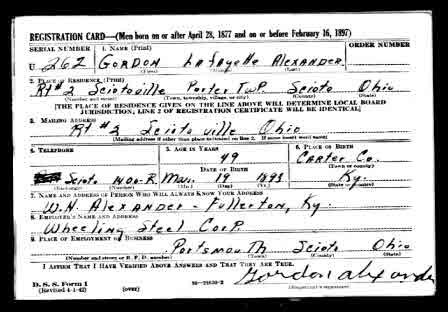 REGISTRATION CARD—(Men born on or after April 28, 1877 and on or before February 16, 1897)
SERIAL NUMBER 1. NAME (Print) ORDER NUMBER
U 262 GORDON Lafayette ALEXANDER
(First) (Middle) (Last)
2. PLACE OF RESIDENCE (Print)
Rt # 2 Sciotoville Porter Twp. Scioto Ohio
(Number and street) (Town, township, village, or city) (County) (State)
[THE PLACE OF RESIDENCE GIVEN ON THE LINE ABOVE WILL DETERMINE LOCAL BOARD
JURISDICTION; LINE 2 OF REGISTRATION CERTIFICATE WILL BE IDENTICAL]
3. MAILING ADDRESS
Rt # 2 Scioto ville Ohio
[Mailing address if other than place indicated on line 2. If same insert word same]
4. TELEPHONE 5. AGE IN YEARS 6. PLACE OF BIRTH
49 Carter Co.
DATE OF BIRTH (Town or county)
Scioto 1400-R Mar. 19 1893 Ky.
(Exchange) (Number) (Mo.) (Day) (Yr.) (State or country)
7. NAME AND ADDRESS OF PERSON WHO WILL ALWAYS KNOW YOUR ADDRESS
W.H. Alexander - Fullerton, Ky.
8. EMPLOYER'S NAME AND ADDRESS
Wheeling Steel Corp.
9. PLACE OF EMPLOYMENT OR BUSINESS
Portsmouth Scioto Ohio
(Number and street or R. F. D. number) (Town) (County) (State)
I AFFIRM THAT I HAVE VERIFIED ABOVE ANSWERS AND THAT THEY ARE TRUE.
D. S. S. Form 1
(Revised 4-1-42) (over) 16—21630-2
Gordon Alexander
(Registrant's signature)